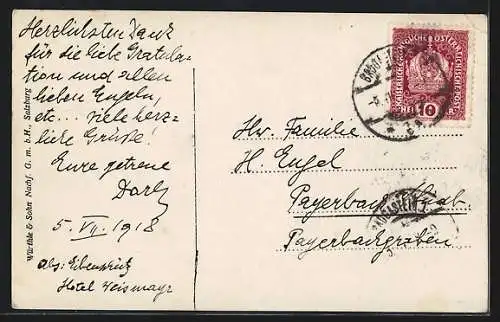 Herzlichsten Dank
für die liebe Gratula-
tion und allen
lieben Engeln,
etc... viele herz-
liche Grüße!
Eure getreue
5. VII. 1918
Abs:
Hotel Weismayr
Würthle & Sohn Nachf. G. m. b. H., Salzburg
KAISERLICHE KÖNIGLICHE ÖSTERREICHISCHE POST
10
Hw. Familie
H. Engel
Payerbach
Payerbachgraben